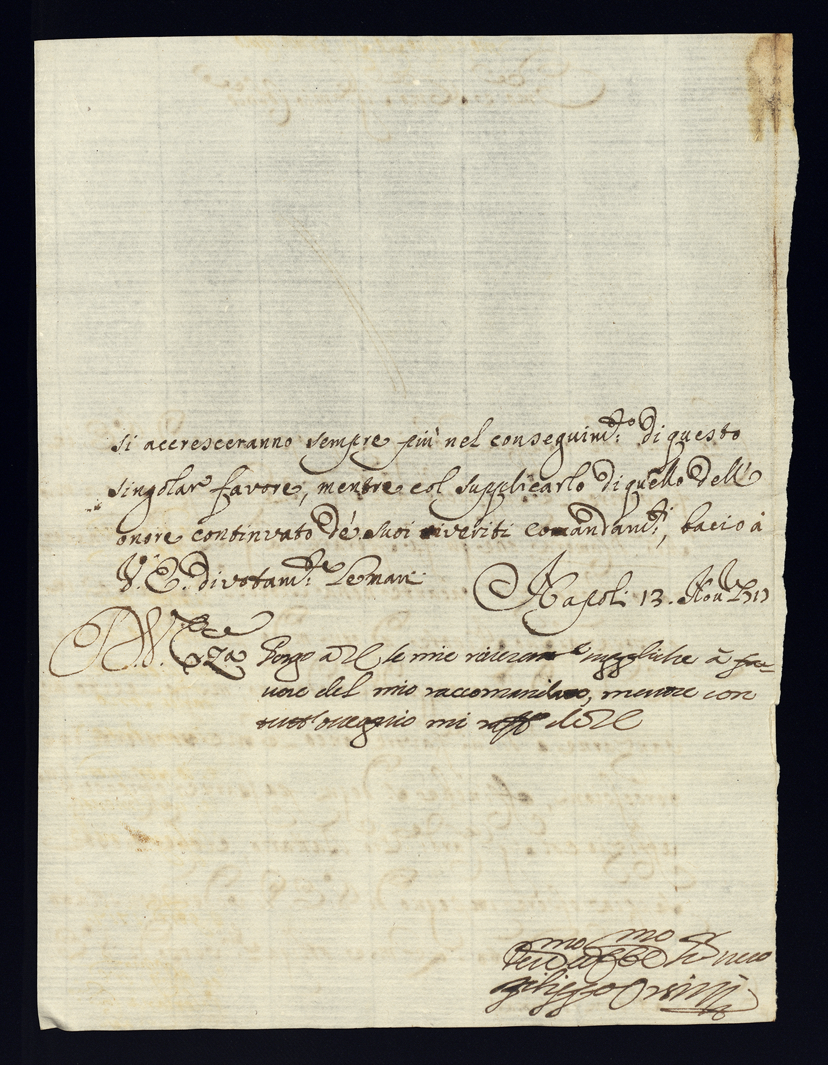 si accresceranno sempre più nel conseguim.to di questo
singolar favore, mentre col supplicarlo di quello dell'
onore continvato de' suoi riveriti comandam.ti, bacio à
V. E. divotam.te le mani Napoli 13. Nov.
Porgo a le mie suppliche à fa-
vore del mio raccomandato, mentre con
mi
Filippo Orsini